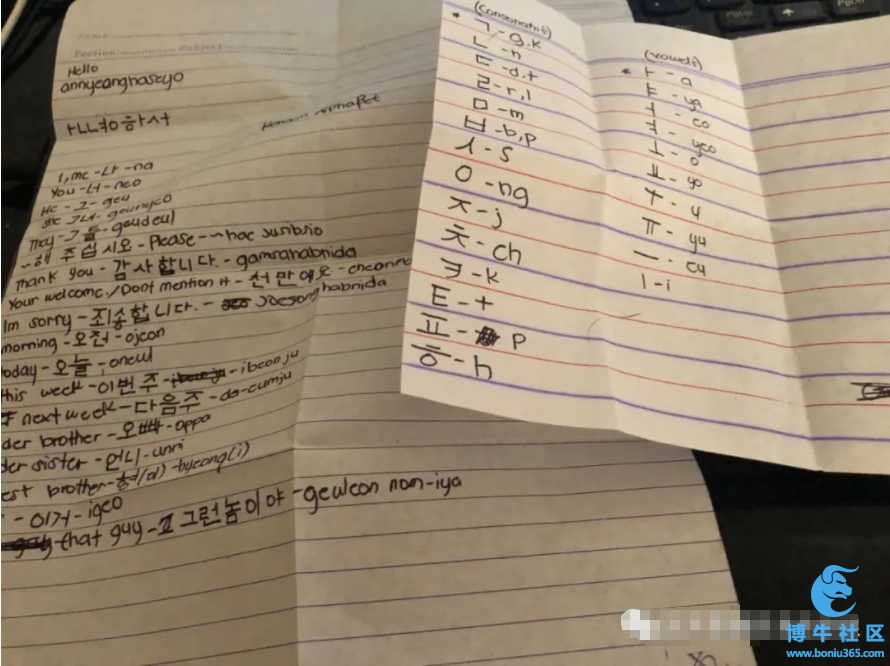 Name
Section Subject
Hello
annyeonghaseyo
ㅏㄴㄴㅕㅇㅎㅏㅅㅓ
I, me - 나 - na
You - 너 - neo
He - 그 - geu
She 그녀 - geunyeo
They - 그들 - geudeul
~해 주십시오 - Please - ~hae jusibsio
Thank you - 감사합니다. - gamsahabnida
Your welcome / Dont mention it - 천만에요 - cheonma
Im sorry - 죄송합니다. - joesonghabnida
morning - 오전 - ojeon
today - 오늘 - oneul
this week - 이번 주 - ibeon ju
next week - 다음주 - da-eumju
der brother - 오빠 - oppa
der sister - 언니 - unni
est brother - 형(이) - hyeong(i)
- 이거 - igeo
that guy - 그런놈이야 - geuleon nom-iya
(consonants)
• ㄱ - g.k
ㄴ - n
ㄷ - d.t
ㄹ - r,l
ㅁ - m
ㅂ - b,p
ㅅ - s
ㅇ - ng
ㅈ - j
ㅊ - ch
ㅋ - k
ㅌ - t
ㅍ - p
ㅎ - h
(vowels)
• ㅏ - a
ㅑ - ya
ㅓ - eo
ㅕ - yeo
ㅗ - o
ㅛ - yo
ㅜ - u
ㅠ - yu
ㅡ - eu
ㅣ - i
博牛社区
www.boniu365.com